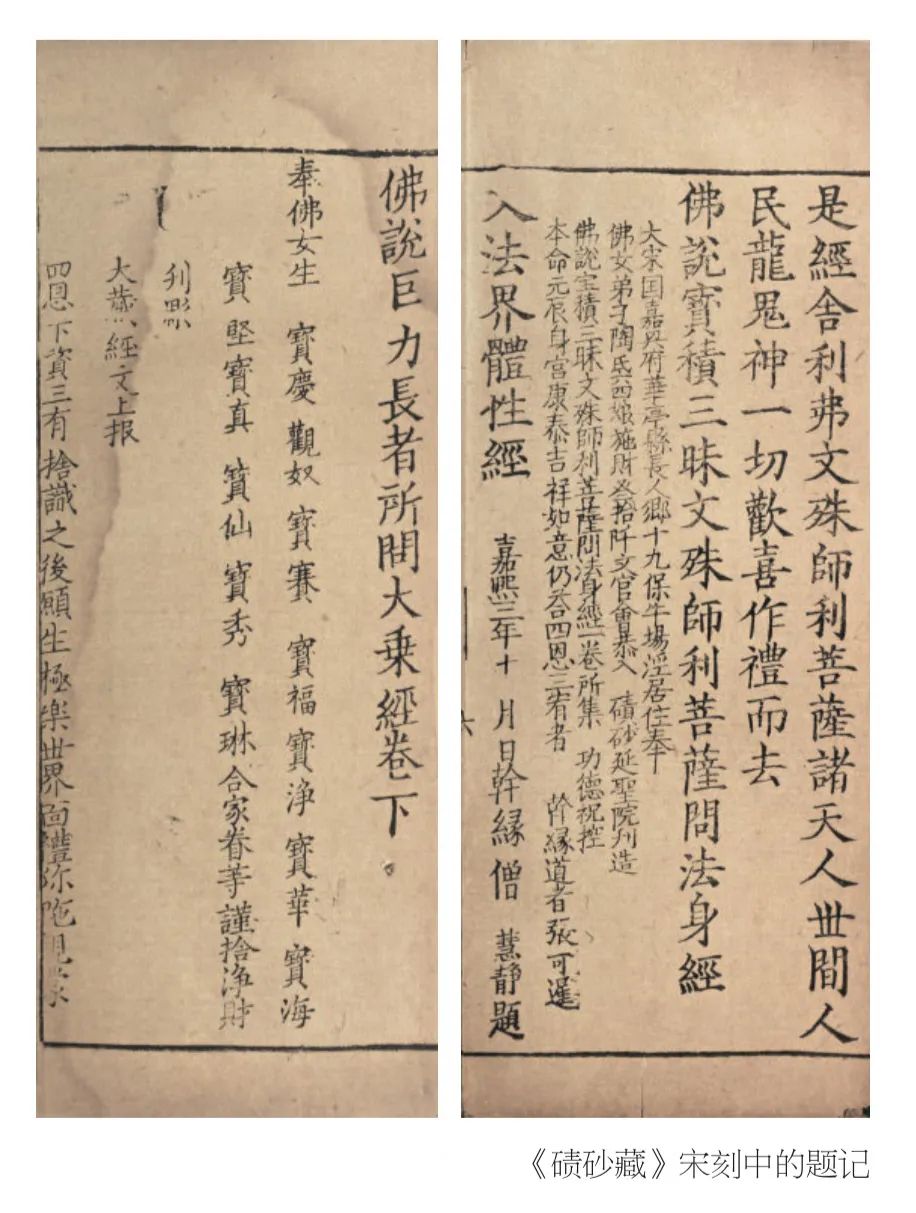 是經舍利弗文殊師利菩薩諸天人丗間人
民龍鬼神一切歡喜作禮而去
佛說寶積三昧文殊師利菩薩問法身經
大宋国嘉興府華亭縣長人鄉十九保牛場涇居住奉
佛女弟子陶氏四娘施財叁拾阡文官會恭入 磧砂延聖院刋造
佛說宝積三昧文殊師利菩薩問法身經一卷所集 功德祝控
本命元辰身宫康泰吉祥如意仍荅四恩三宥者 幹縁道者張可暹
入法界體性經 嘉熈三年十 月日幹縁僧 慧静題
六
佛說巨力長者所問大乗經卷下
奉佛女生 寶慶 觀奴 寶賽 寶福 寶浄 寶華 寶海
寶堅 寶真 寶仙 寶秀 寶琳合家眷等謹捨浄財
刋
大蔵經文上报
四恩下資三有 捨識之後願生極楽丗界面禮弥陁
《磧砂藏》宋刻中的题记